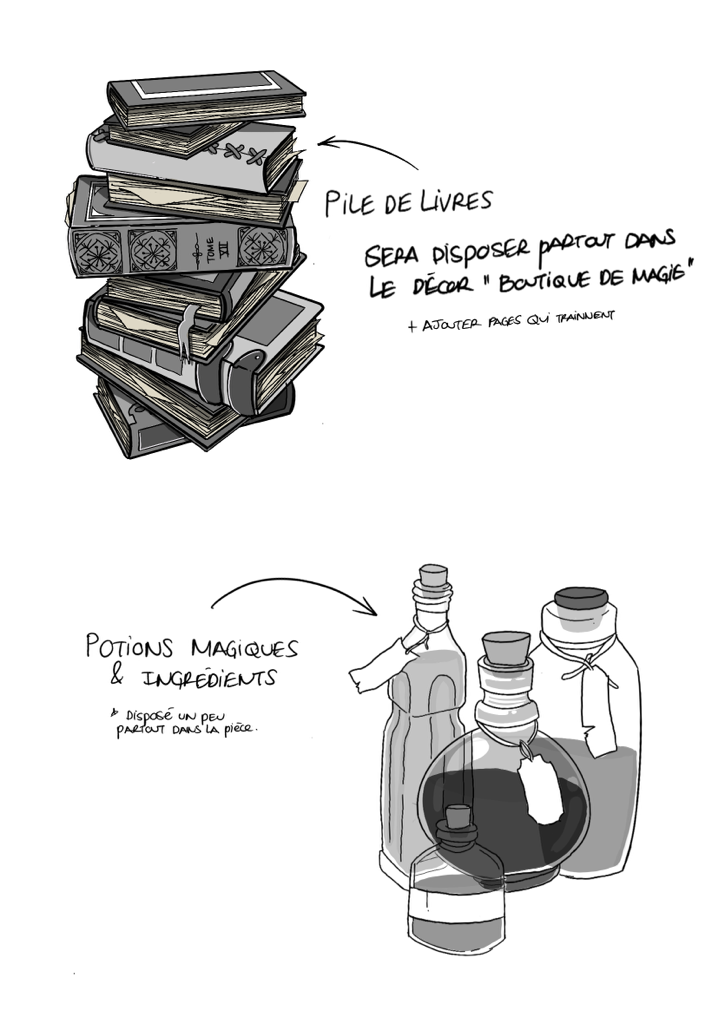 PILE DE LIVRES
SERA DISPOSER PARTOUT DANS
LE DÉCOR "BOUTIQUE DE MAGIE"
+ AJOUTER PAGES QUI TRAINNENT
TOME
VII
POTIONS MAGIQUES
& INGRÉDIENTS
* DISPOSÉ UN PEU
PARTOUT DANS LA PIÈCE.